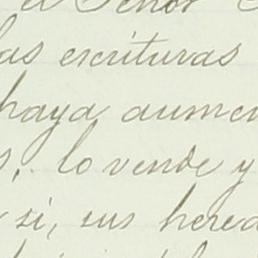 el Señor
las escrituras
haya aumen
s, lo vende y
si, sus hered